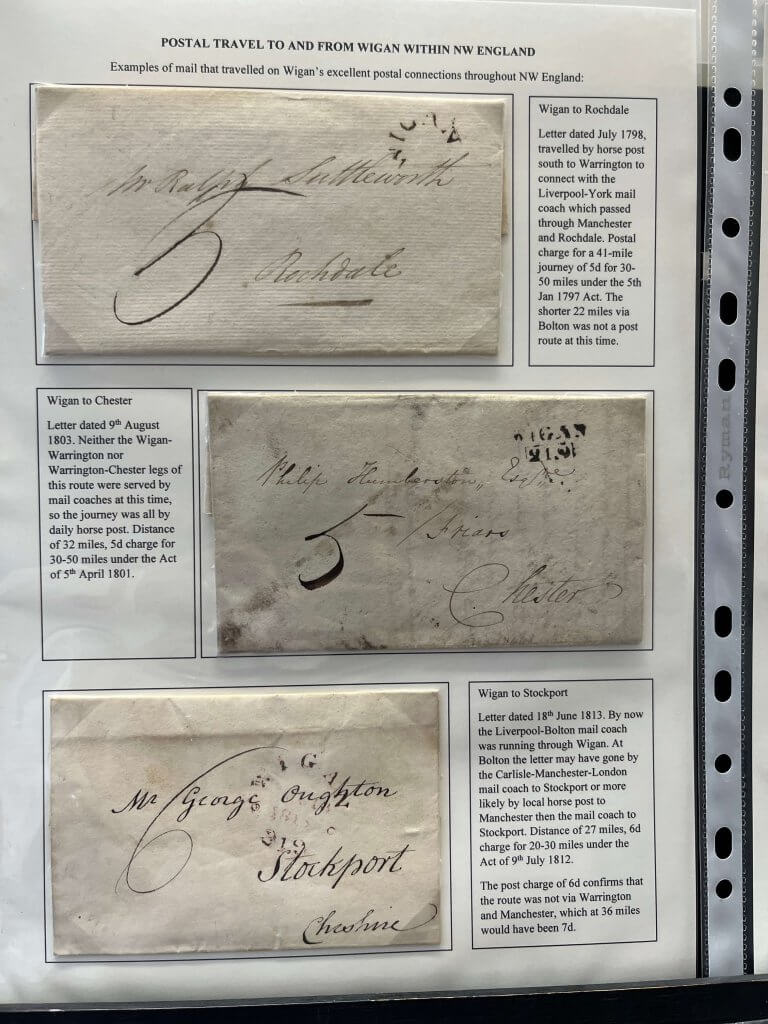 POSTAL TRAVEL TO AND FROM WIGAN WITHIN NW ENGLAND
Examples of mail that travelled on Wigan's excellent postal connections throughout NW England:
WIGAN
Mr Ralph Suttleworth
5
Rochdale
Wigan to Rochdale
Letter dated July 1798,
travelled by horse post
south to Warrington to
connect with the
Liverpool-York mail
coach which passed
through Manchester
and Rochdale. Postal
charge for a 41-mile
journey of 5d for 30-
50 miles under the 5th
Jan 1797 Act. The
shorter 22 miles via
Bolton was not a post
route at this time.
Wigan to Chester
Letter dated 9th August
1803. Neither the Wigan-
Warrington nor
Warrington-Chester legs of
this route were served by
mail coaches at this time,
so the journey was all by
daily horse post. Distance
of 32 miles, 5d charge for
30-50 miles under the Act
of 5th April 1801.
WIGAN
Philip Humberston, Esqre
5 / Friars
Chester
WIGAN
Mr George Oughton
6
219
Stockport
Cheshire
Wigan to Stockport
Letter dated 18th June 1813. By now
the Liverpool-Bolton mail coach
was running through Wigan. At
Bolton the letter may have gone by
the Carlisle-Manchester-London
mail coach to Stockport or more
likely by local horse post to
Manchester then the mail coach to
Stockport. Distance of 27 miles, 6d
charge for 20-30 miles under the
Act of 9th July 1812.
The post charge of 6d confirms that
the route was not via Warrington
and Manchester, which at 36 miles
would have been 7d.
Ryman